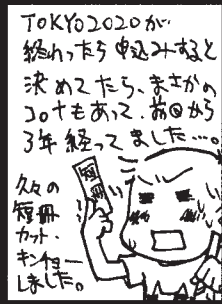 TOKYO2020が
終わったら申込みすると
決めてたら、まさかの
コロナもあって、前回から
3年経ってました…。
短冊
久々の
短冊
カット、
キンチョー
しました。